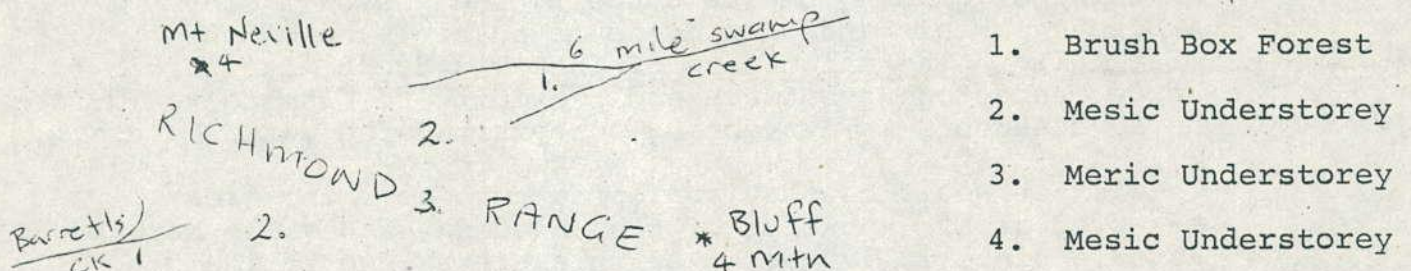 Mt Neville
*4
6 mile swamp
creek
1.
RICHMOND
2.
3. RANGE
* Bluff
4 Mtn
Barretts
ck 1
2.
1. Brush Box Forest
2. Mesic Understorey
3. Meric Understorey
4. Mesic Understorey